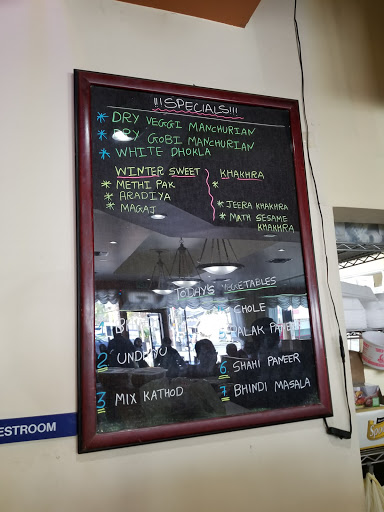 !!!SPECIALS!!!
* DRY VEGGI MANCHURIAN
* DRY GOBI MANCHURIAN
* WHITE DHOKLA
WINTER SWEET
* METHI PAK
* ARADIYA
* MAGAJ
KHAKHRA
*
* JEERA KHAKHRA
* MATH SESAME
KHAKHRA
TODAY'S VEGETABLES
2 UNDHIYU
3 MIX KATHOD
CHOLE
PALAK PANEER
6 SHAHI PANEER
7 BHINDI MASALA
ESTROOM